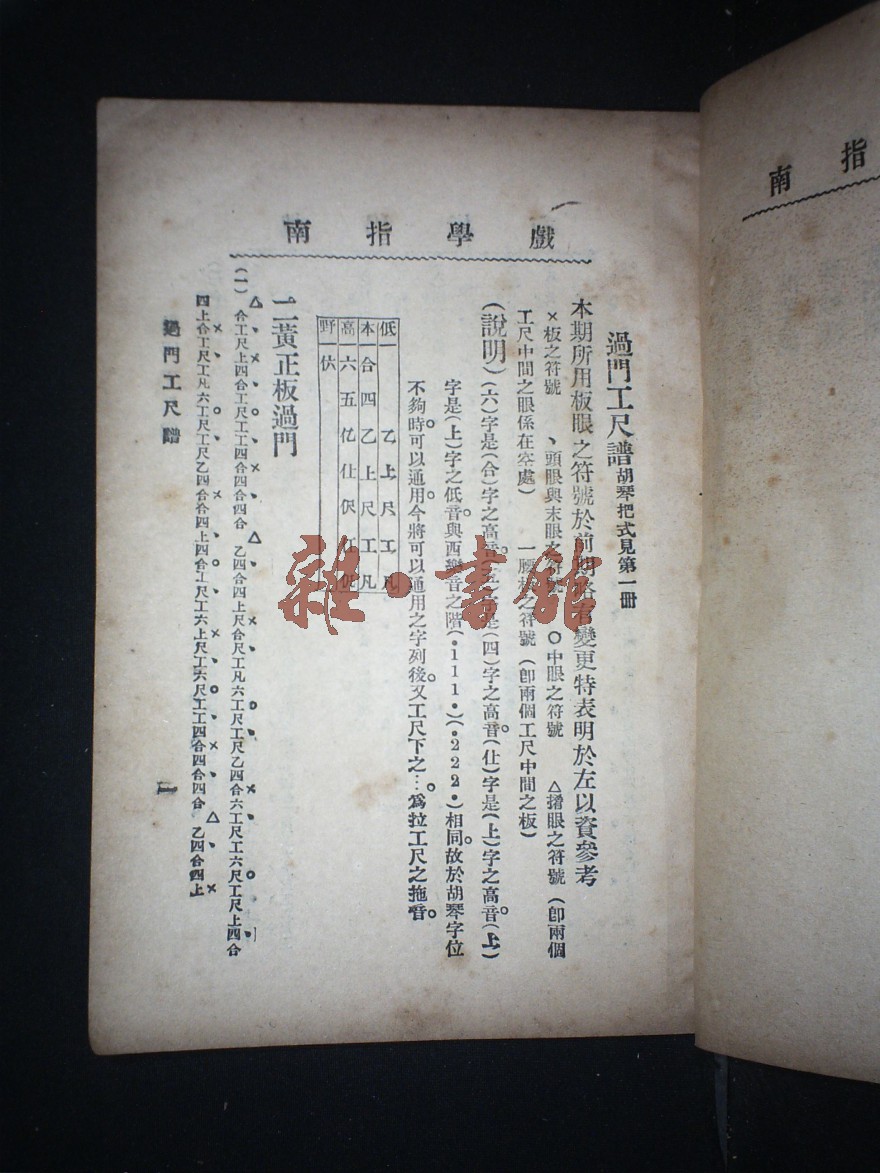 戲學指南
過門工尺譜胡琴把式見第一冊
本期所用板眼之符號於前期略有變更特表明於左以資參考
×板之符號 、頭眼與末眼之符號 ○中眼之符號 △揩眼之符號（卽兩個
工尺中間之眼係在空處） 一腰板之符號（卽兩個工尺中間之板）
（說明）（六）字是（合）字之高音。（五）字是（四）字之高音。（仕）字是（上）字之高音。（上）
字是（上）字之低音。與西樂音之階（•111•）（•222•）相同。故於胡琴字位
不夠時。可以通用。今將可以通用之字列後。又工尺下之…爲拉工尺之拖音。
低一 乙上尺工凡
本一合四乙上尺工凡
高一六五亿仕伬仜
野一伏
二黃正板過門
（一）合工尺上四合工尺工工四合四合四合 乙四合四上尺合尺工凡六工尺工尺乙四合六工尺工六尺工尺上四合
四上合工尺工凡六工尺工尺乙四合
過門工尺譜
一
指南
雜·書館